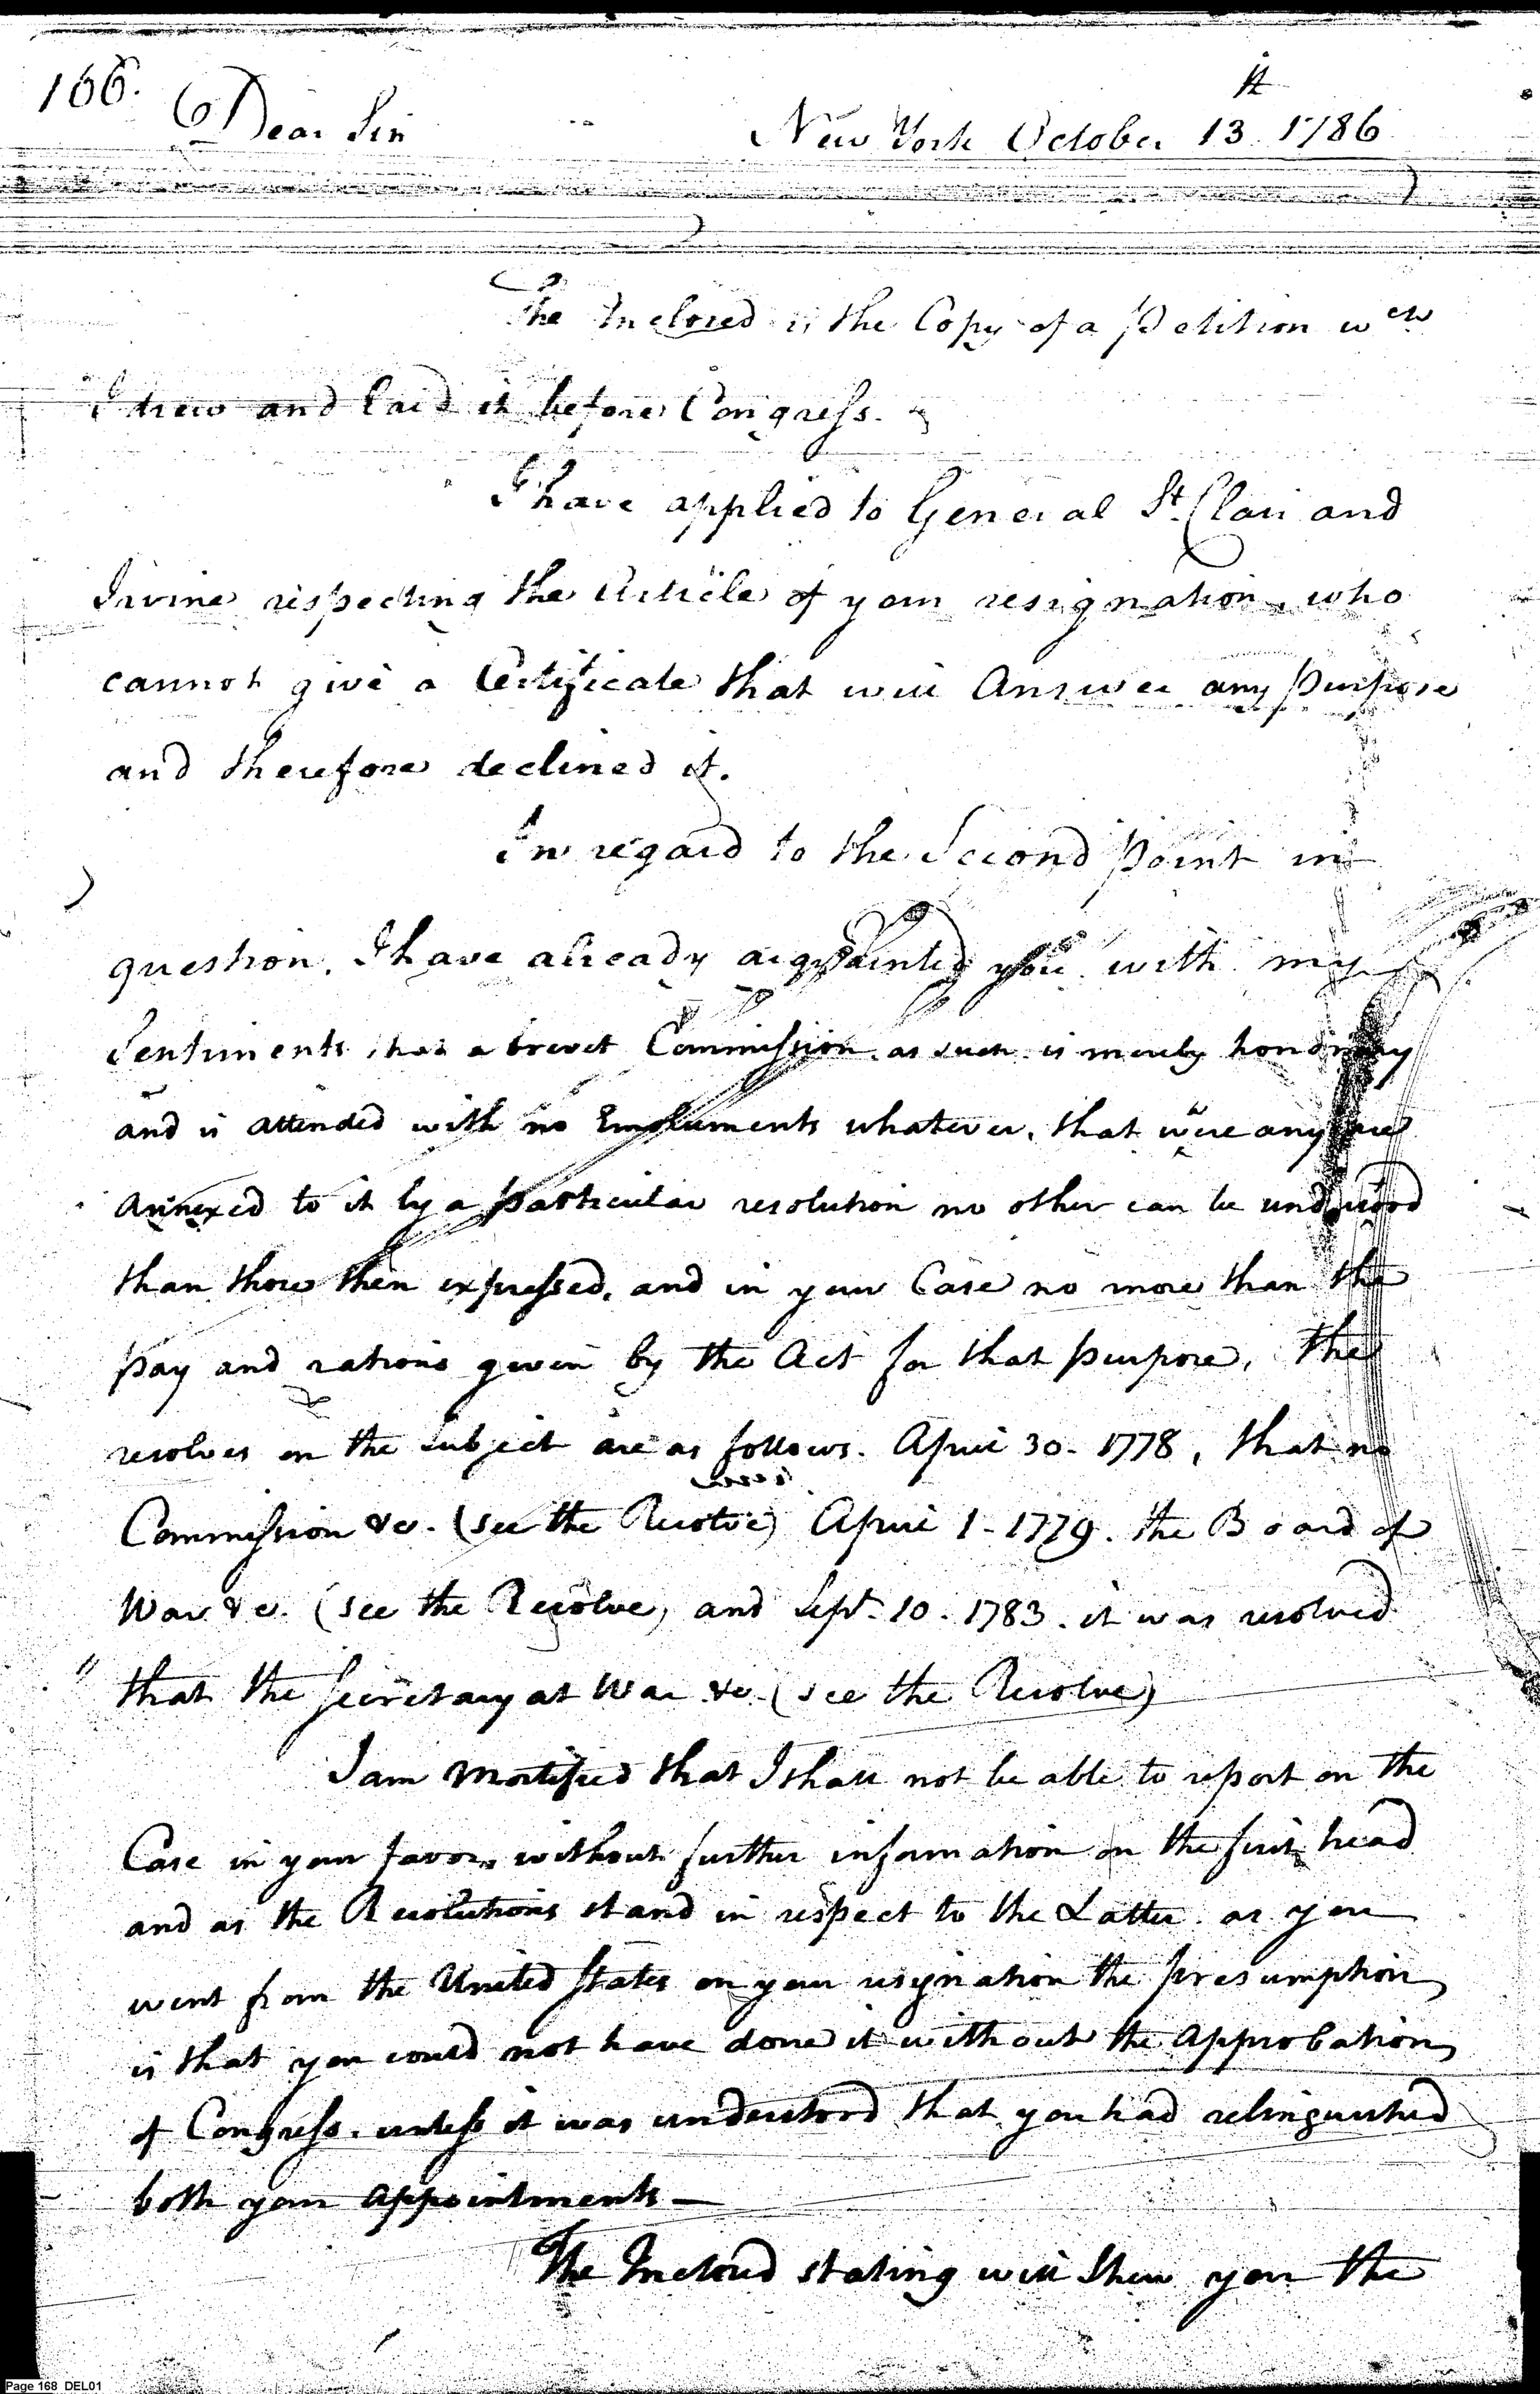 166.
Dear Sir New York October 13th 1786
The Inclosed is the Copy of a Petition wch
I drew and laid it before Congress.
I have applied to General St. Clair and
Irvine respecting the Article of your resignation, who
cannot give a Certificate that will Answer any Purpose
and therefore declined it.
In regard to the Second Point in
question, I have already acquainted you with my
Sentiments that a brevet Commission, as such is merely honorary
and is attended with no Emoluments whatever, that were any
annexed to it by a Particular resolution no other can be understood
than those then expressed, and in your Case no more than the
pay and rations given by the Act for that purpose, The
resolves on the subject are as follows. April 30- 1778, that no
Commission &c. (see the Resolve) April 1- 1779. the Board of
War &c. (see the Resolve) and Sept. 10- 1783. it was resolved
" that the Secretary at War &c. (see the Resolve)
I am Mortified that I shall not be able to report on the
Case in your favor, without further information on the first head
and as the Resolutions stand in respect to the Latter. as you
went from the United States on your resignation the presumption
is that you could not have done it without the Approbation
of Congress. unless it was understood that you had relinquished
both your Appointments —
The Inclosed stating will shew you the
Page 168 DEL01